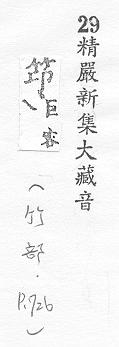 29精嚴新集大藏音
筇巨容
(竹部.P.726)